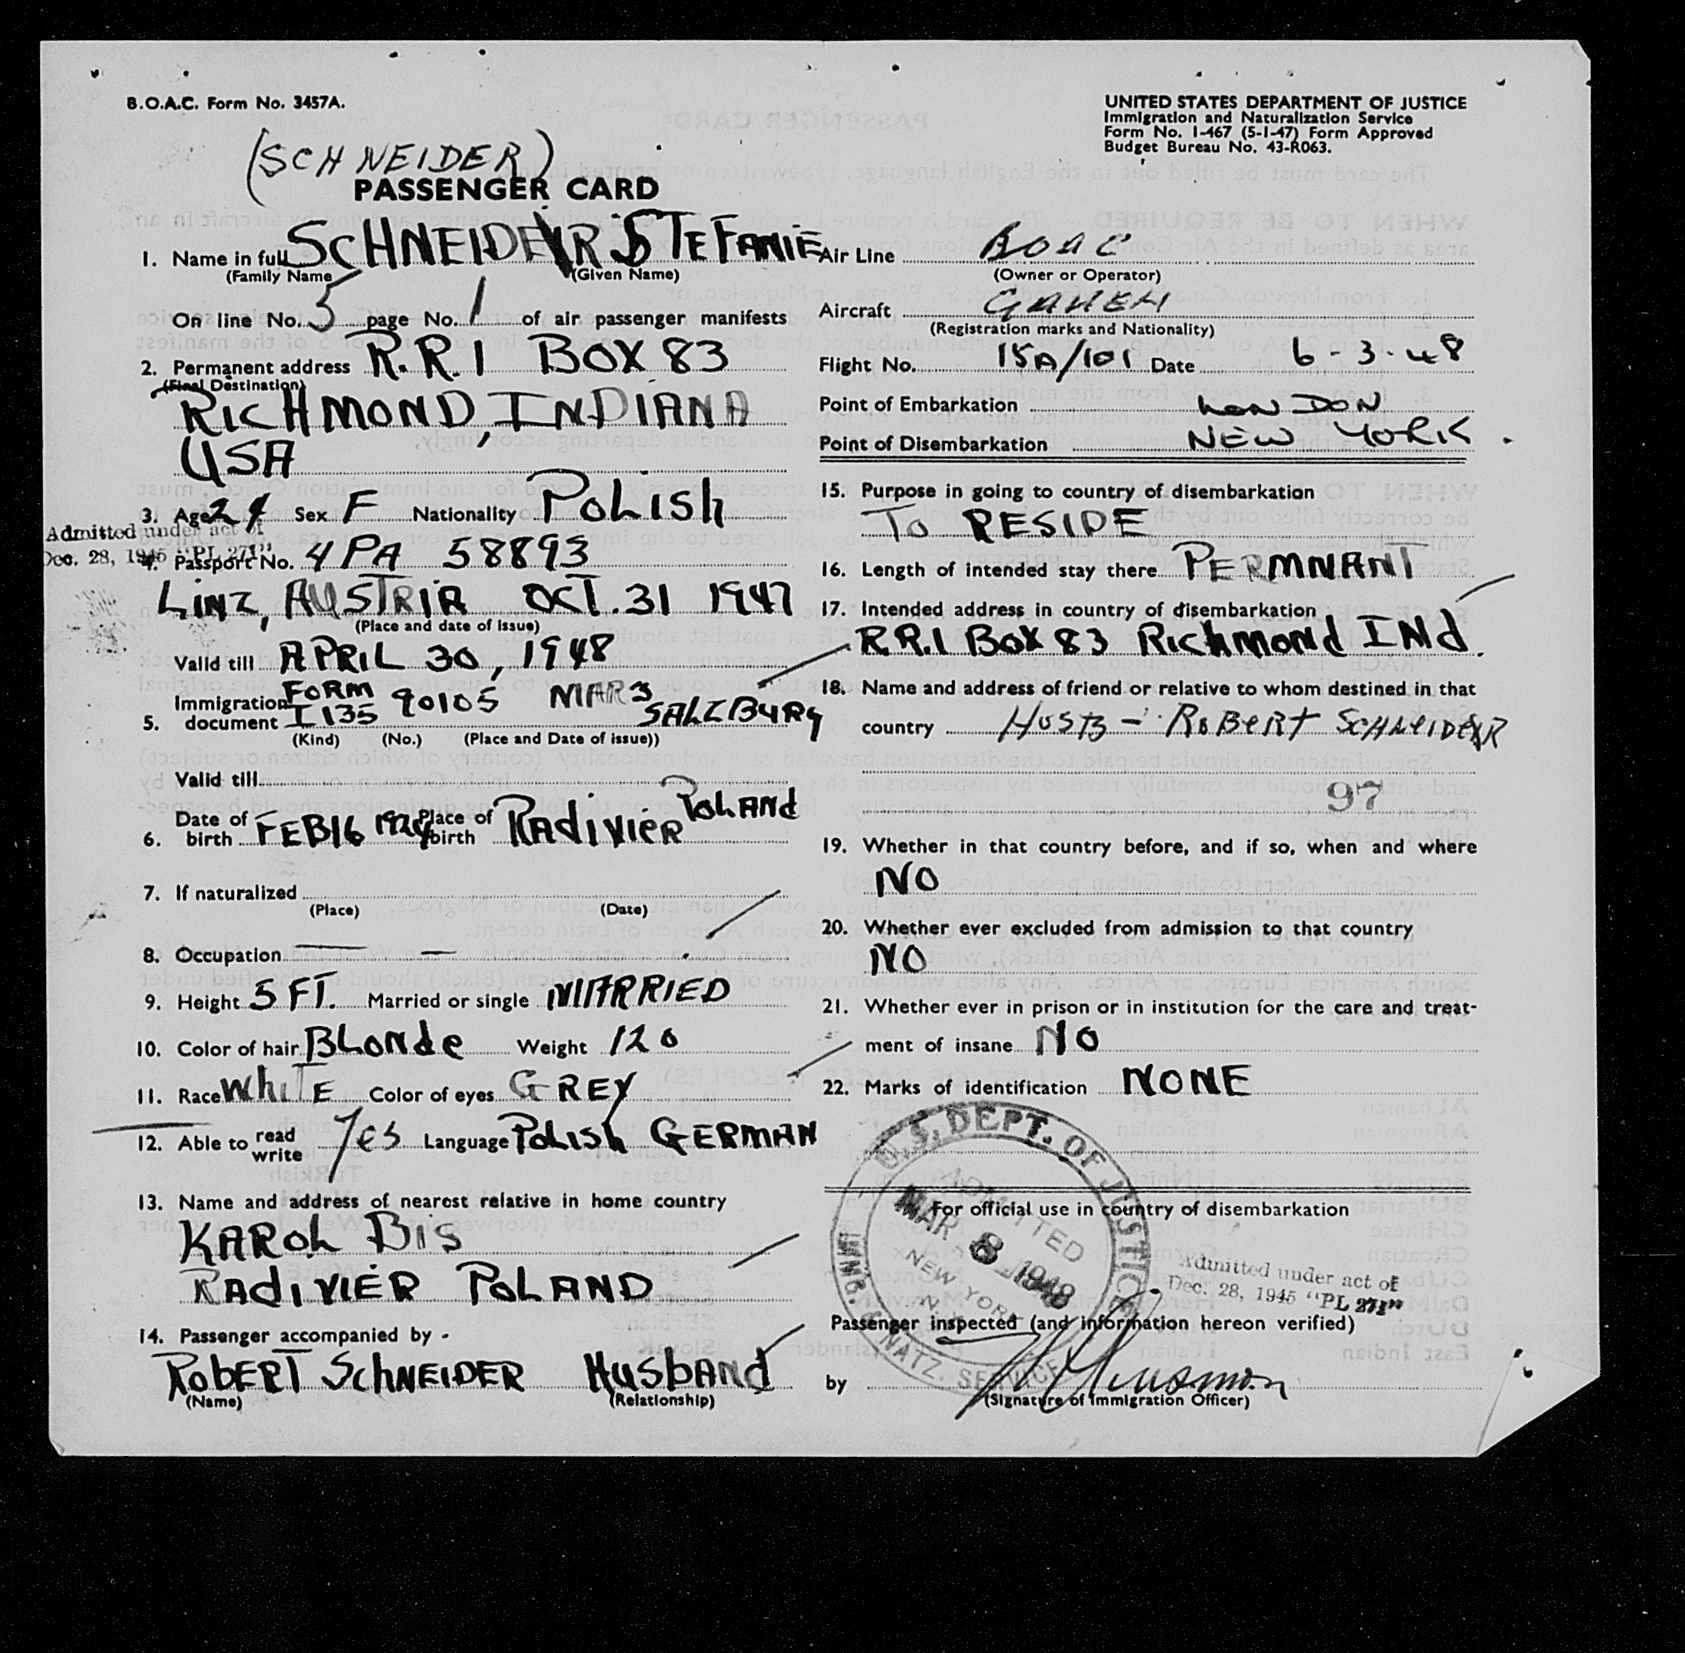 B.O.A.C. Form No. 3457A.
UNITED STATES DEPARTMENT OF JUSTICE
Immigration and Naturalization Service
Form No. I-467 (5-1-47) Form Approved
Budget Bureau No. 43-R063.
(SCHNEIDER)
PASSENGER CARD
1. Name in full SCHNEIDER STEFANIE
(Family Name) (Given Name)
On line No. 5 page No. 1 of air passenger manifests
2. Permanent address R.R.1 BOX 83
(Final Destination)
RICHMOND, INDIANA
USA
3. Age 24 Sex F Nationality POLISH
Admitted under act of
Dec. 28, 1945 "PL 271"
4. Passport No. 4PA 58893
LINZ, AUSTRIA OCT. 31 1947
(Place and date of issue)
Valid till APRIL 30, 1948
5. Immigration document FORM I 135 90105 MAR 3 SALZBURG
(Kind) (No.) (Place and Date of issue))
Valid till
6. Date of birth FEB 16 1924 Place of birth RADIVIER POLAND
7. If naturalized
(Place) (Date)
8. Occupation —
9. Height 5 FT. Married or single MARRIED
10. Color of hair BLONDE Weight 120
11. Race WHITE Color of eyes GREY
12. Able to read write Yes Language POLISH GERMAN
13. Name and address of nearest relative in home country
KAROL BIS
RADIVIER POLAND
14. Passenger accompanied by -
ROBERT SCHNEIDER HUSBAND
(Name) (Relationship)
Air Line BOAC
(Owner or Operator)
Aircraft GAHEM
(Registration marks and Nationality)
Flight No. 15A/101 Date 6-3-48
Point of Embarkation LONDON
Point of Disembarkation NEW YORK.
15. Purpose in going to country of disembarkation
TO RESIDE
16. Length of intended stay there PERMNANT
17. Intended address in country of disembarkation
R.R.1 BOX 83 RICHMOND IND.
18. Name and address of friend or relative to whom destined in that
country HUSB - ROBERT SCHNEIDER
97
19. Whether in that country before, and if so, when and where
NO
20. Whether ever excluded from admission to that country
NO
21. Whether ever in prison or in institution for the care and treat-
ment of insane NO
22. Marks of identification NONE
U.S. DEPT. OF JUSTICE
ADMITTED
MAR 8 1948
NEW YORK
N.Y.
IMMG. & NATZ. SERVICE
For official use in country of disembarkation
Admitted under act of
Dec. 28, 1945 "PL 271"
Passenger inspected (and information hereon verified)
by
(Signature of Immigration Officer)